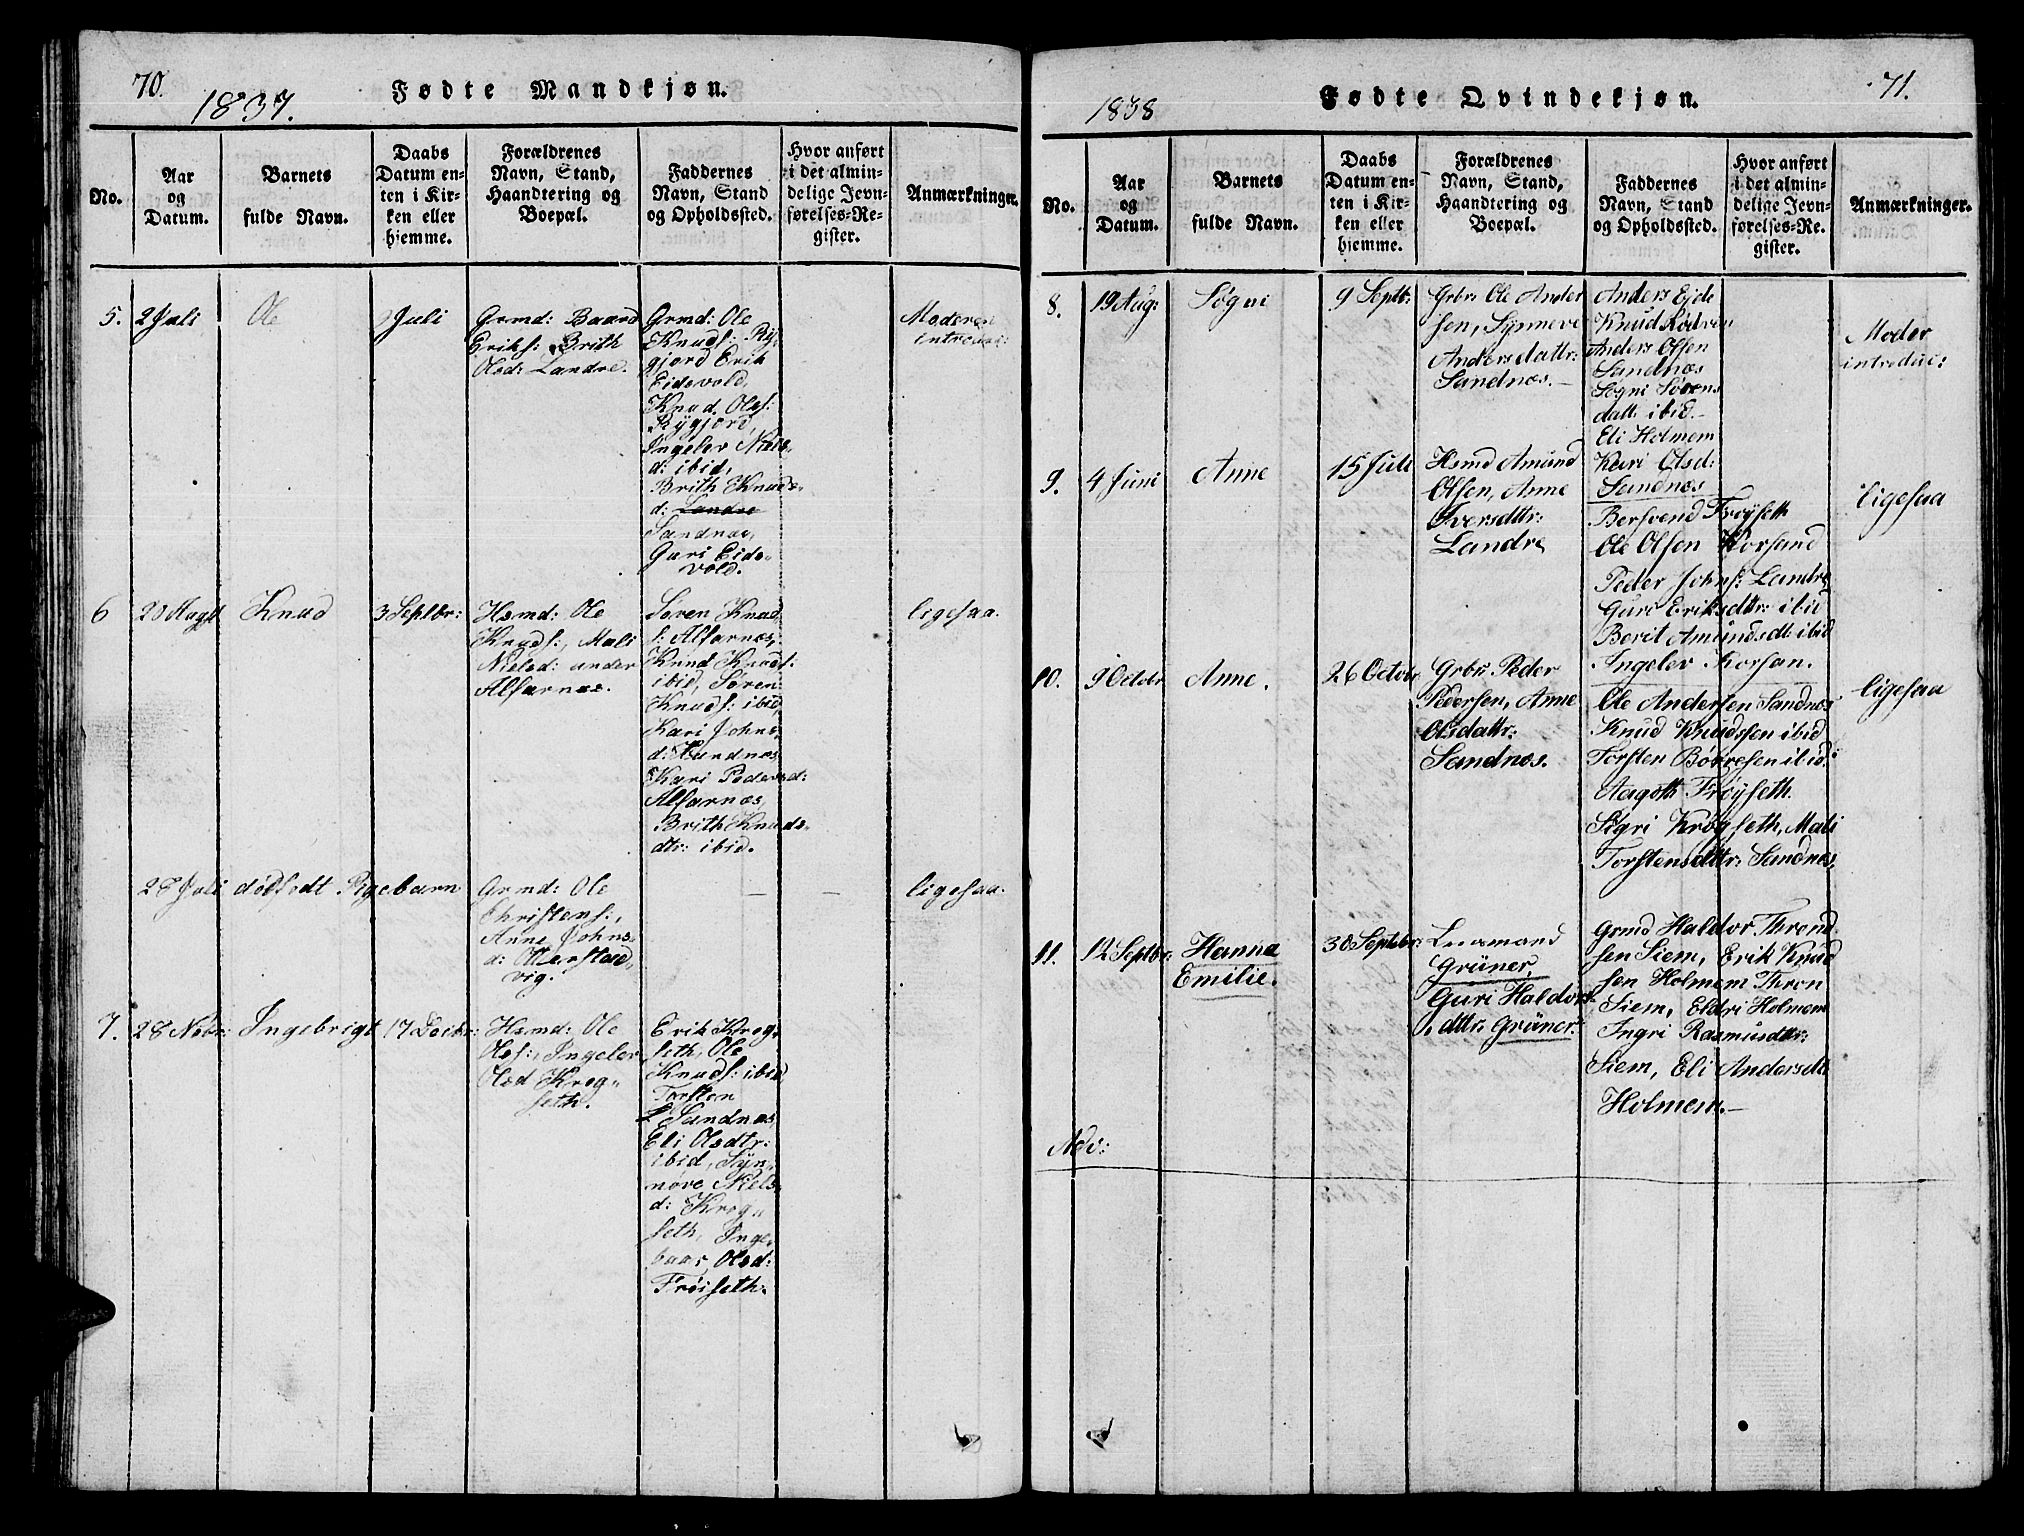 70.
1837.
Fødte Mandkjøn.
No.
Aar
og
Datum.
Barnets
fulde Navn.
Daabs
Datum en-
ten i Kir-
ken eller
hjemme.
Forældrenes
Navn, Stand,
Haandtering og
Boepæl.
Faddernes
Navn, Stand
og Opholdssted.
Hvor anført
i det almin-
delige Jevn-
førelses-Re-
gister.
Anmærkninger.
5.
2 Juli
Ole
Juli
Grmd: Baard
Eriks: Brith
Olsd: Landre.
Grmd: Ole
Knuds: Ry-
gjord Erik
Eidsvold,
Knud Ols:
Rygjord,
Ingeler Niels-
d: ibid,
Brith Knuds-
d: Landre
Sandnæs,
Guri Eids-
vold.
Moderen
introduc:
6
Augst
Knud
3 Septbr:
Hsmd: Ole
Knuds:, Mali
Nielsd: under
Alfarnæs.
Søren Knud
s: Alfarnæs,
Knud Knuds:
ibid, Søren
Knuds: ibid
Kari Johns-
d:
Kari Pedersd:
Alfarnæs,
Brith Knuds-
dtr: ibid.
ligesaa.
28 Juli
dødfødt Pigebarn
Grmd: Ole
Christens:,
Anne Johns-
d:
vig.
ligesaa.
7.
28 Novbr:
Ingebrigt
17 Decbr:
Hsmd: Ole
Ols:, Ingeler
Olsd Krog-
seth.
Erik Krog-
seth, Ole
Knuds: ibid
Torsten
Sandnæs
Eli Olsdtr:
ibid, Syn-
nøve Niels-
d: Krog-
seth, Inge-
baar Olsd:
Frøiseth.
71.
1838
Fødte Qvindekjøn.
No.
Aar
og
Datum.
Barnets
fulde Navn.
Daabs
Datum en-
ten i Kir-
ken eller
hjemme.
Forældrenes
Navn, Stand,
Haandtering og
Boepæl.
Faddernes
Navn, Stand
og Opholdssted.
Hvor anført
i det almin-
delige Jevn-
førelses-Re-
gister.
Anmærkninger.
8.
19 Aug:
Søgni
9 Septb:
Grbr: Ole Ander
sen, Synneve
Andersdattr:
Sandnæs.-
Anders Ejde
Knud Rødven
Anders Olsen
Sandnæs
Søgni Sørens
datt: ibid.-
Eli Holmem
Moder
introduc:
9.
4 Juni
Anne
15 Juli
Hsmd Amund
Olsen, Anne
Iversdttr:
Landre
Kari Olsd:
Sandnæs
Bersvend Frøyseth
Ole Olsen Korsand
Peder Johns: Landre
Guri Eriksdttr: ibid
Berit Amundsdt: ibid
Ingeler Korsan.
ligesaa
10.
9 Octbr
Anne.
26 Octobr
Grbr: Peder
Pedersen, Anne
Olsdattr:
Sandnæs.
Ole Andersen Sandnæs
Knud Knudssen ibid
Torsten Børresen ibid:
Aagoth Frøyseth.
Sigri Krøgseth, Mali
Torstensdttr: Sandnæs,
ligesaa
11.
12 Septbr:
Hanna
Emilie.
30 Septebr:
Lensmand
Grüner,
Guri Haldors
dttr: Grüner.
Grmd Haldor Thrond
sen Siem, Erik Knud
sen Holmem Thron
Siem, Eldri Holmem
Ingri Rasmusdttr:
Siem, Eli Andersdt
Holmem.-
Nov: